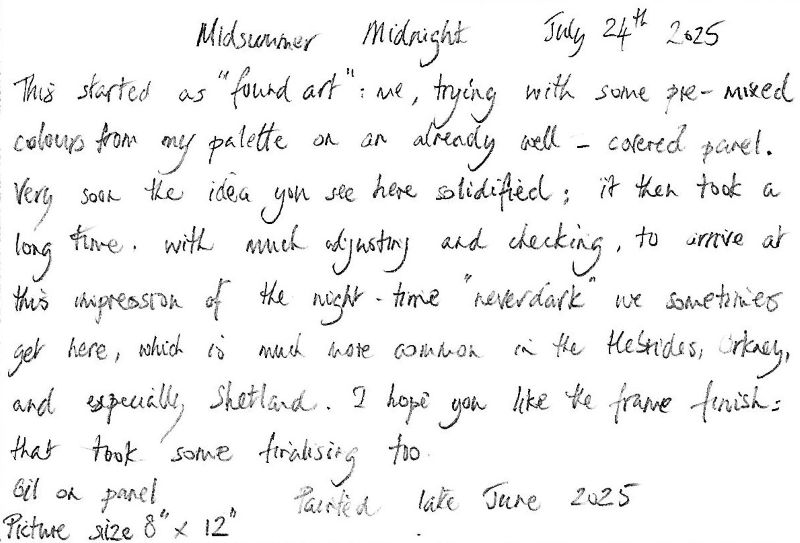 Midsummer Midnight July 24th 2025
This started as "found art": me, trying with some pre-mixed
colours from my palette on an already well-covered panel.
Very soon the idea you see here solidified; it then took a
long time. with much adjusting and checking, to arrive at
this impression of the night-time "neverdark" we sometimes
get here, which is much more common in the Hebrides, Orkney,
and especially Shetland. I hope you like the frame finish:
that took some finalising too.
Oil on panel Painted late June 2025
Picture size 8" x 12"